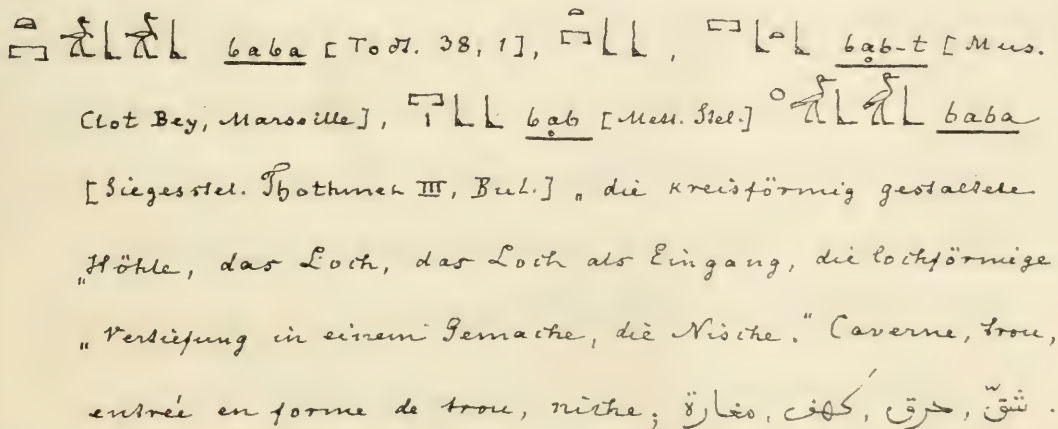 baba [Todt. 38, 1], , bạb-t [Mus.
Clot Bey, Marseille], bạb [Mett. Stel.] baba
[Siegesstel. Thothmes III, Bul.] „die kreisförmig gestaltete
„Höhle, das Loch, das Loch als Eingang, die lochförmige
„Vertiefung in einem Gemache, die Nische." Caverne, trou,
entrée en forme de trou, niche; شقّ, خرق, كهف, مغارة.